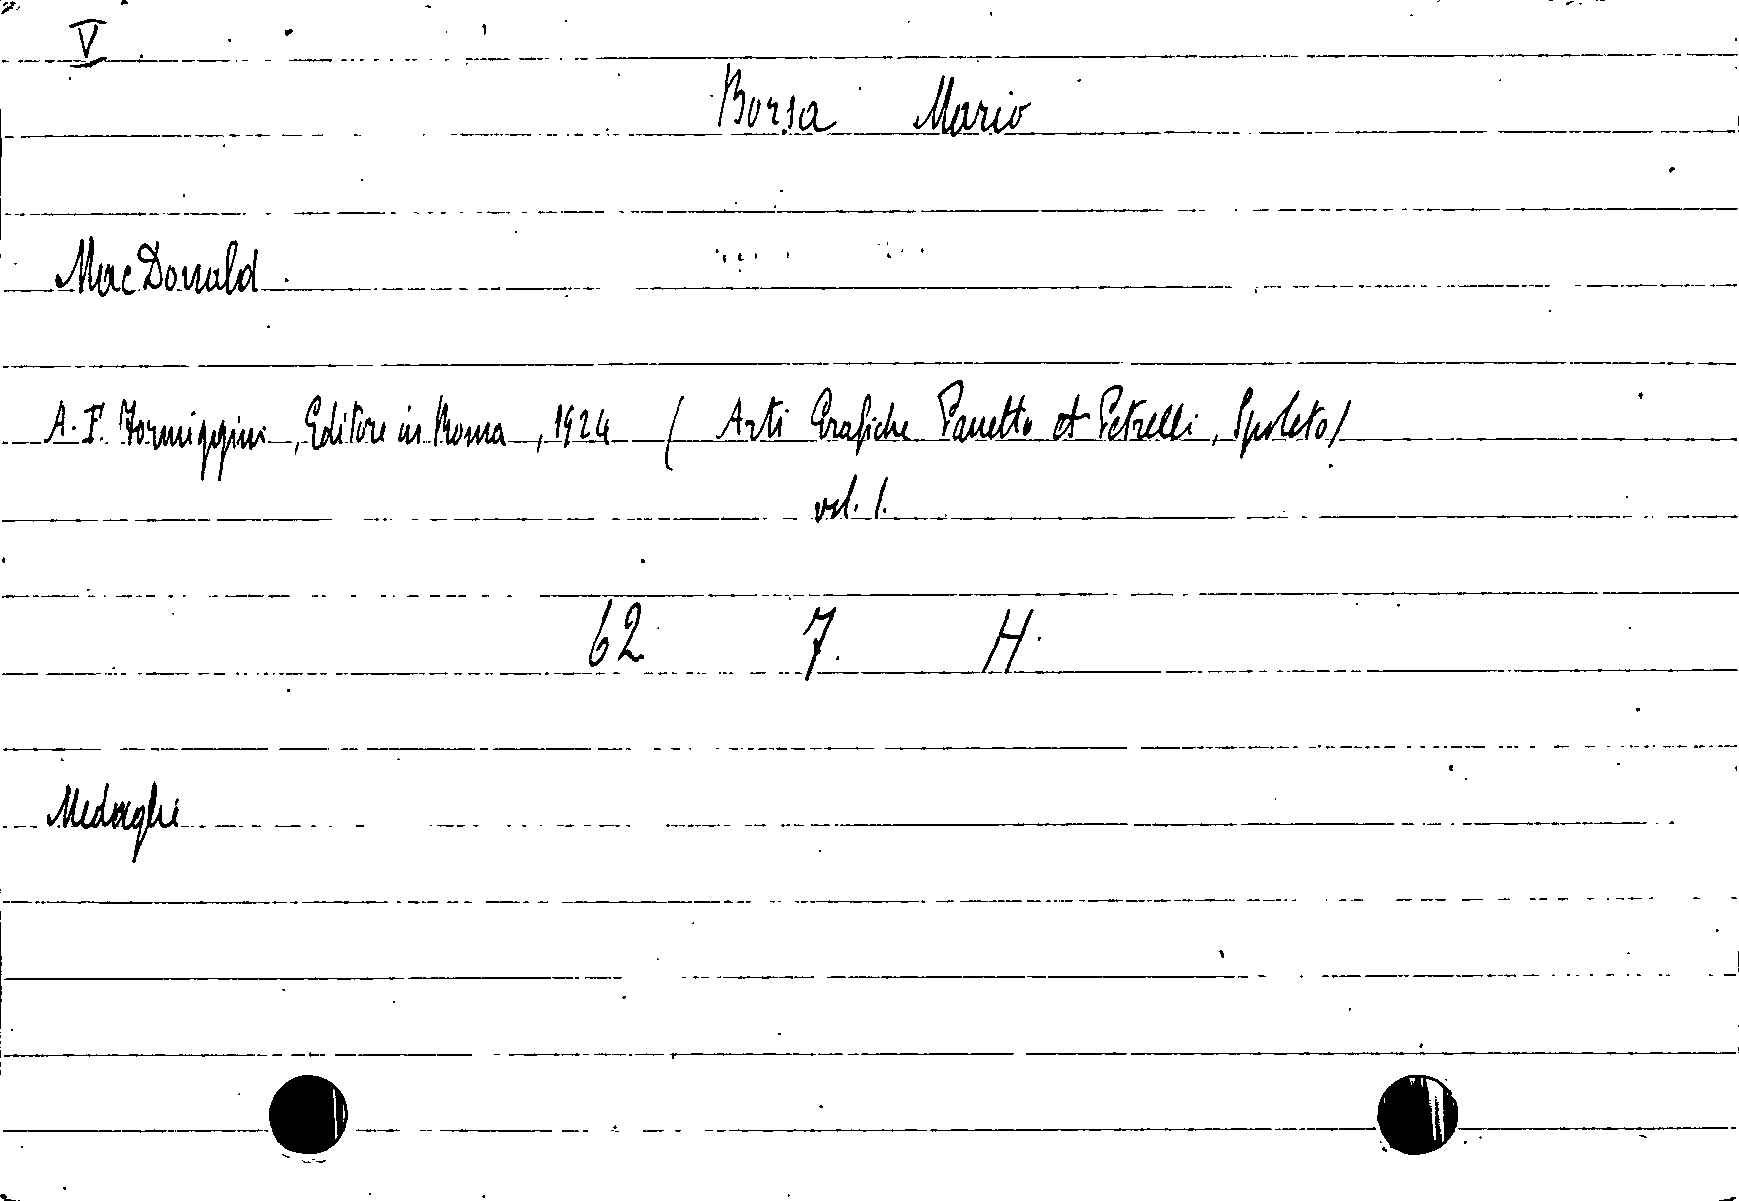 V
Borsa Mario
MacDonald
A. F. Formiggini, Editore in Roma, 1924 ( Arti Grafiche Panetto et Petrelli, Spoleto/
vol. 1.
62 7. H.
Medaglie